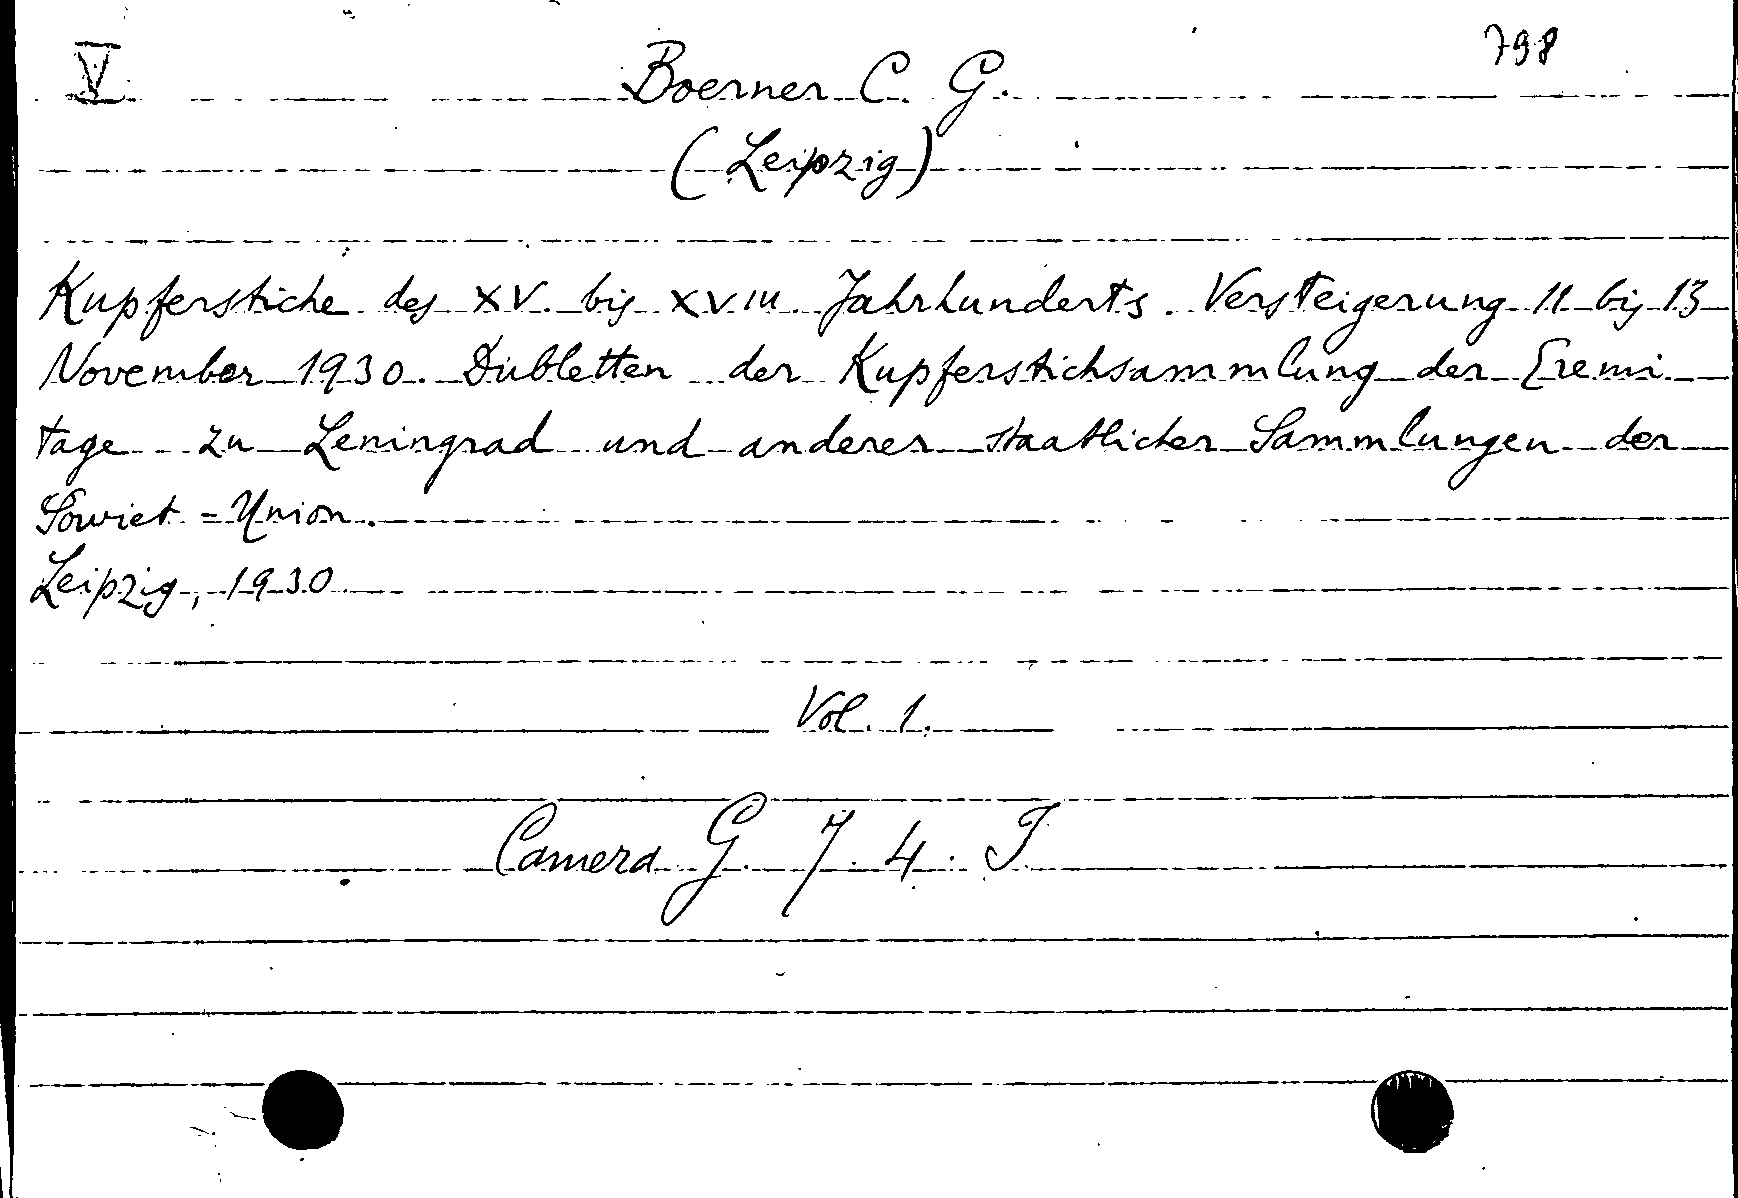 V
798
Boerner C. G.
(Leipzig)
Kupferstiche des XV. bis XVIII. Jahrhunderts. Versteigerung 11 bis 13
November 1930. Dubletten der Kupferstichsammlung der Eremi
tage zu Leningrad und anderer staatlicher Sammlungen der
Sowiet-Union.
Leipzig, 1930
Vol. 1.
Camera G. 7. 4. I